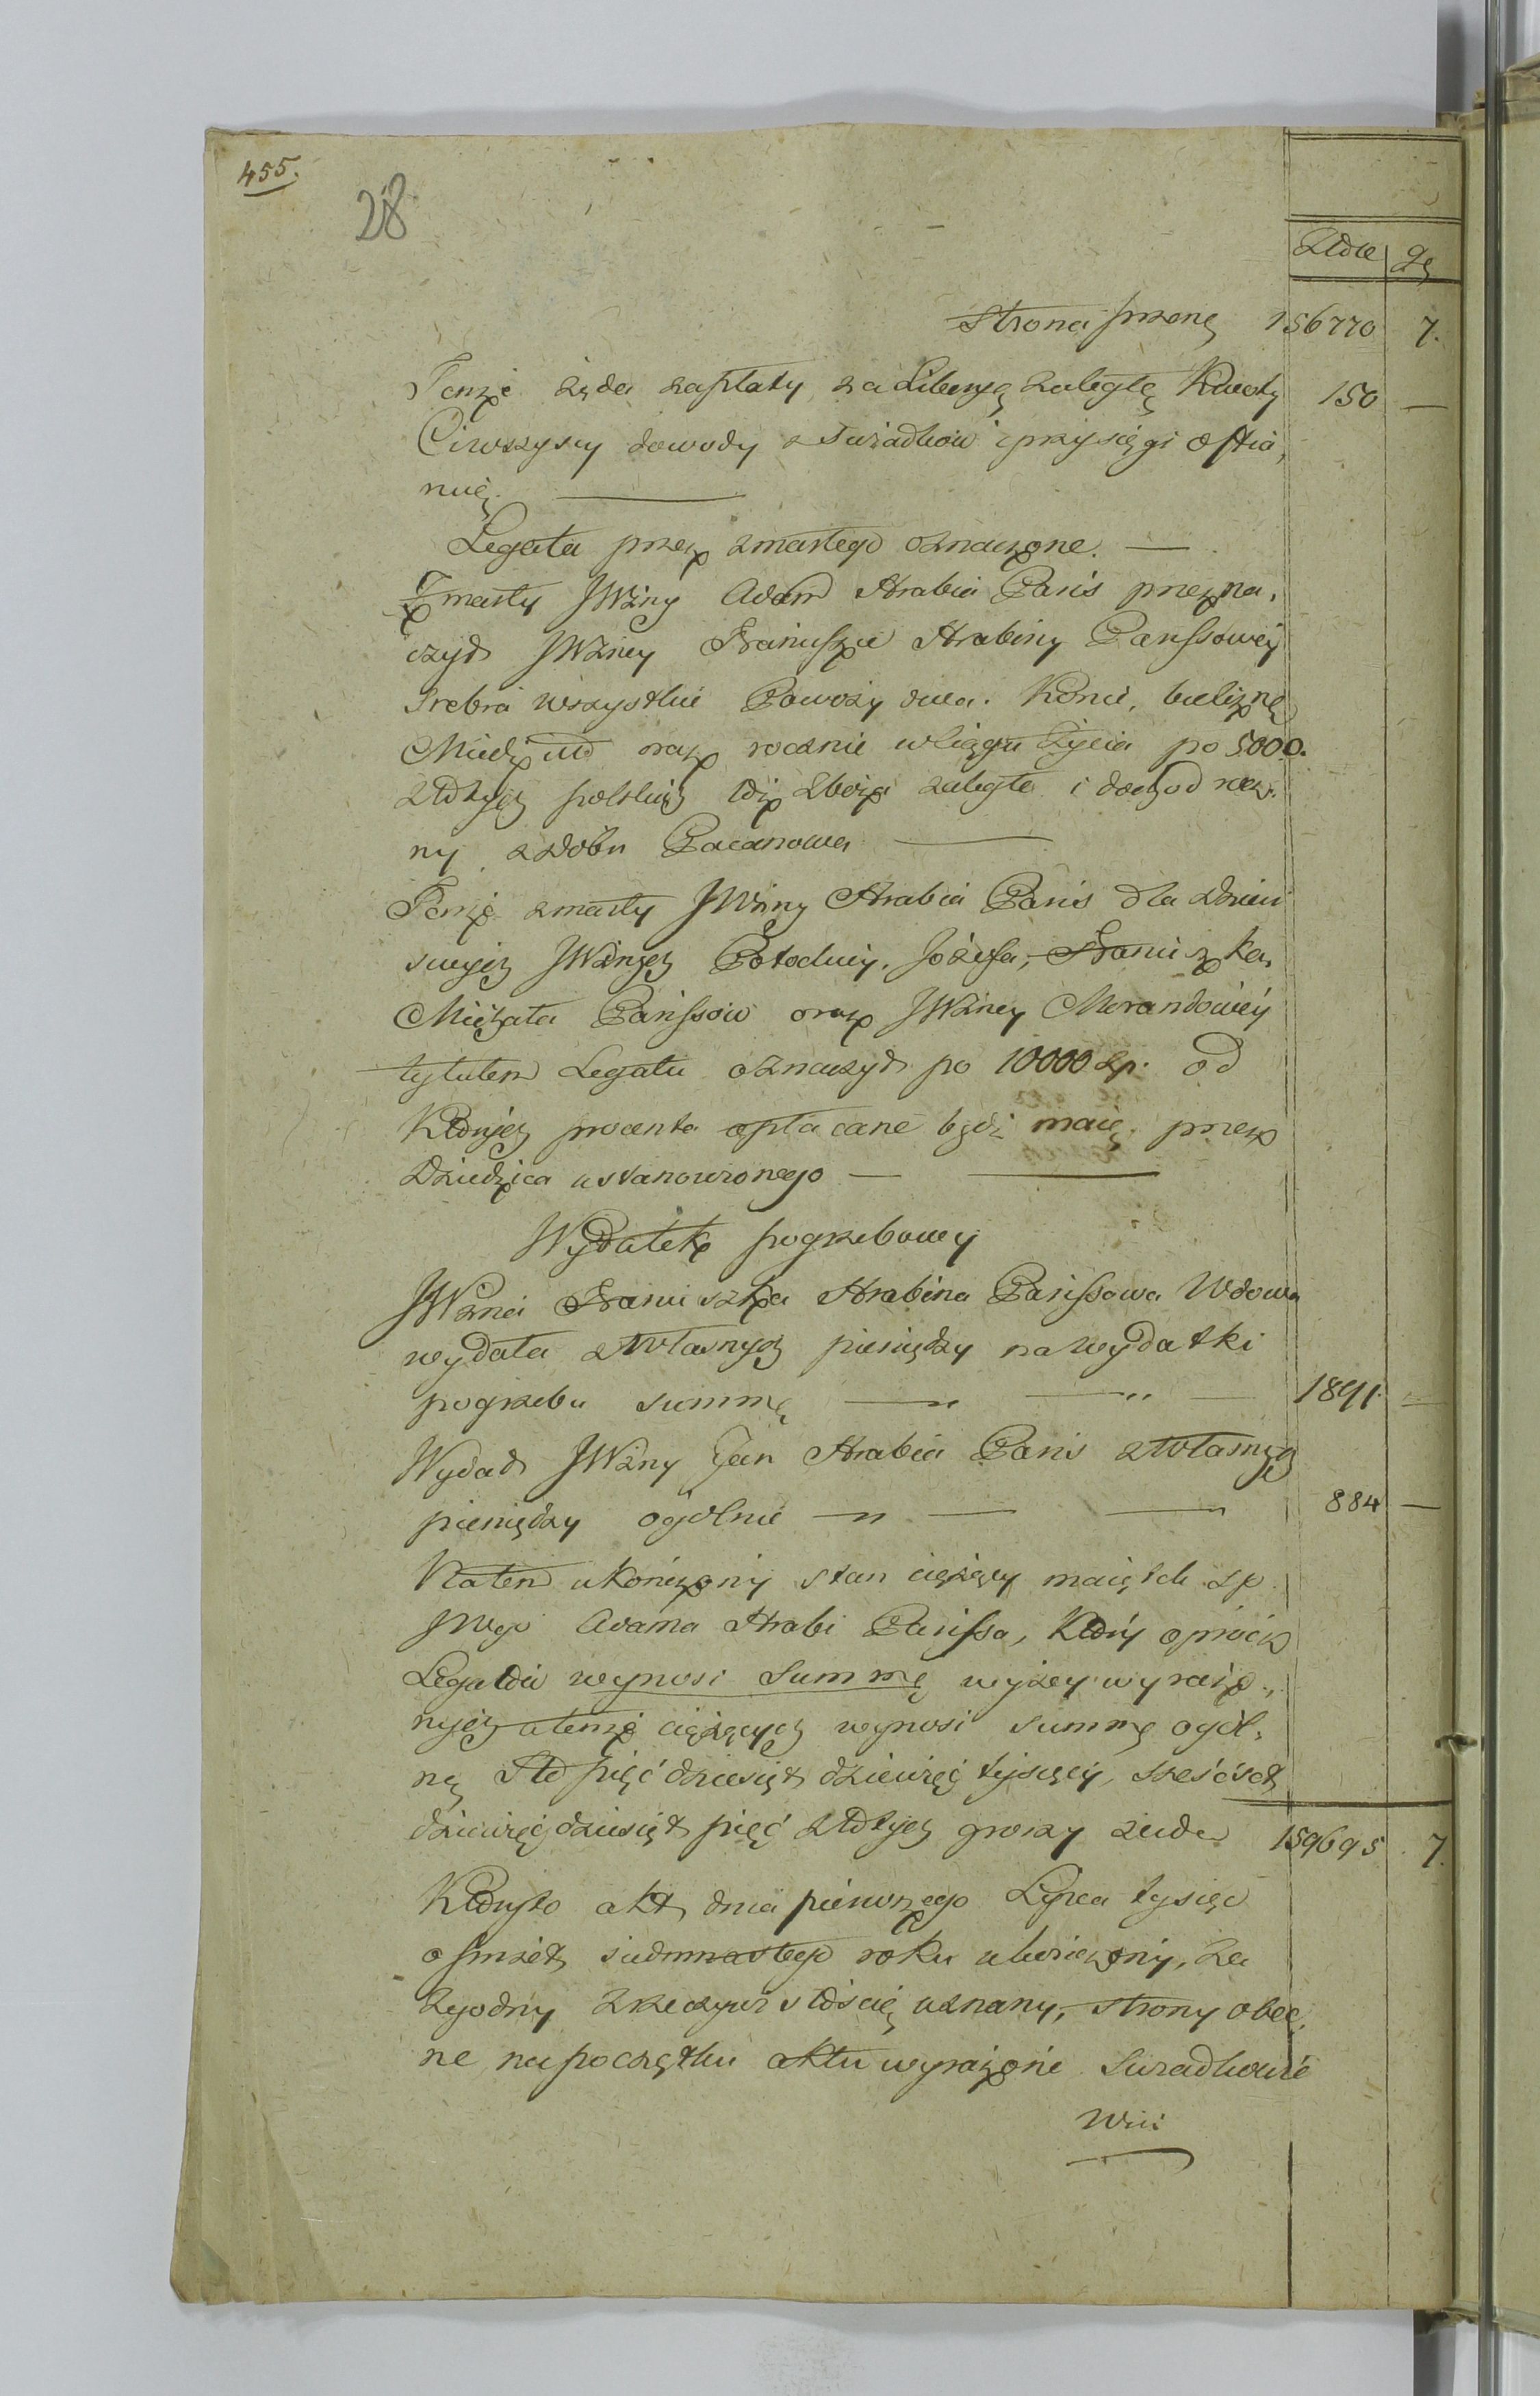 455.
28
Złote gr
Strona przenę 156770 7.
Tenże żąda zapłaty za Liberyą zaległą Kwoty 150 —
Ciwszyscy dowody z Swiadków i przysięgi offia,
ruią. —
Legata przez zmarłego oznaczone. —
Zmarły JWżny Adam Hrabia Paris przezna,
czył JWżney Franciszce Hrabiny Parissowéy
Srebra wszystkie Powozy dwa. Konie, bieliznę
Miedź oraz rocznie w ciągu życia po 5000.
złotych polskich zboża zaległe i dochod rocz.
ny z dóbr Pacanowa —
Tenże zmarły JWżny Hrabia Paris dla dzieci
swych JWżnych Józefa, Franciszka,
Michała Parissów oraz JWżney Morandowéy
tytułem Legatu oznaczył po 10000 zp. od
których procenta opłacane bydź maią. przez
Dziedzica ustanowionego —
Wydatek pogrzebowy
JWżna Franciszka Hrabina Parissowa Wdowa
wydała z własnych pieniędzy na wydatki
pogrzebu summę — " — " — 1891. =
Wydał JWżny Jan Hrabia Paris z własnych
pieniędzy ogólnie — " — — 884 —
Zatem ukończony stan ciężący maiątek zp
JWgo Adama Hrabi Parissa, który oprócz
Legatów wynosi Summę wyżey wyrażo.,
nych a temże ciężących wynosi summę ogól,
ną Sto pięćdziesiąt dziewięć tysięcy, sześćset
dziewięćdziesiąt pięć złotych groszy siedm 159695. 7.
Któryto akt dnia pierwszego Lipca tysiąc
ośmset siedmnastego roku ukończony, za
zgodny z rzeczywistością uznany, strony obec,
ne na początku aktu wyrażone Swiadkowie